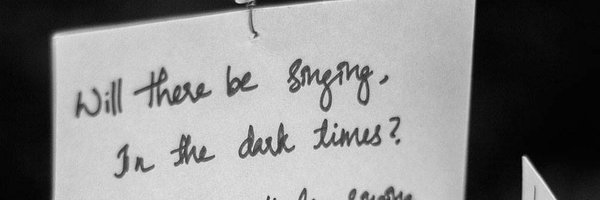 Will there be singing,
In the dark times?
singing